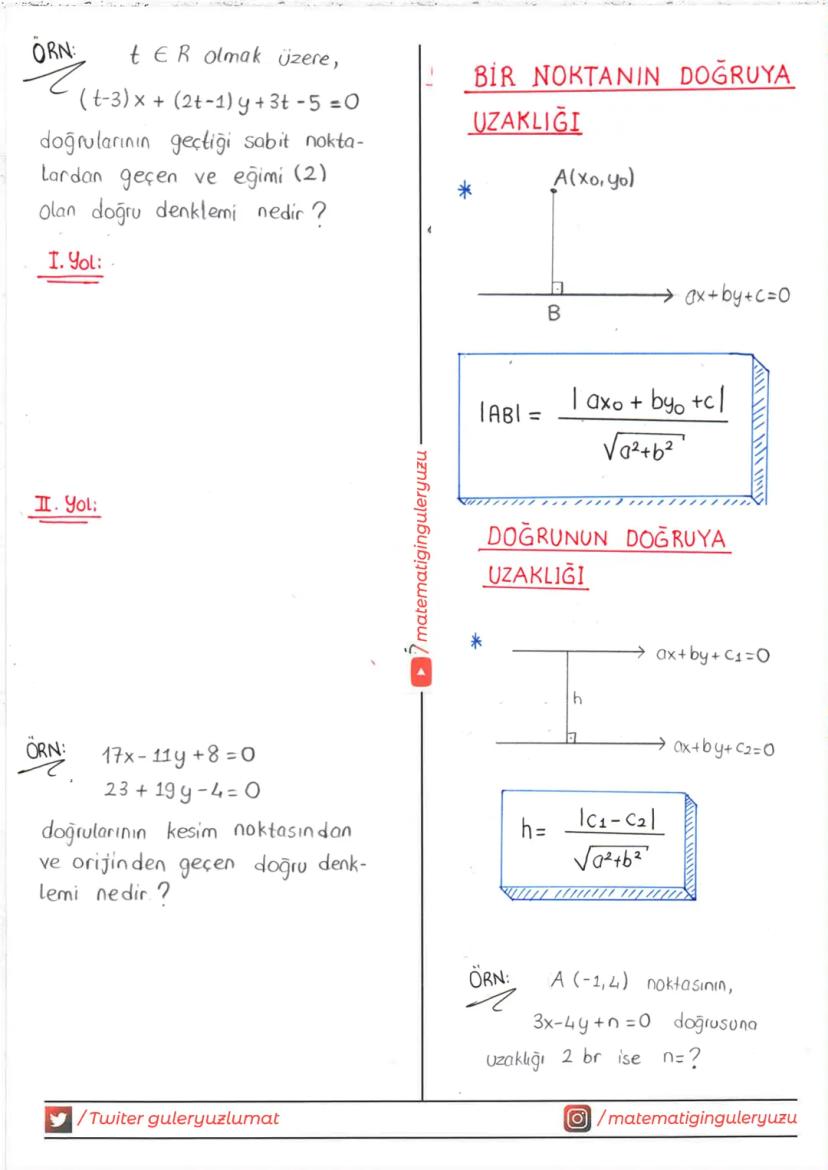 ÖRN: t ∈ R olmak üzere,
(t-3)x + (2t-1)y + 3t - 5 = 0
doğrularının geçtiği sabit nokta-
lardan geçen ve eğimi (2)
olan doğru denklemi nedir?
I. Yol:
II. Yol:
ÖRN: 17x - 11y + 8 = 0
23 + 19y - 4 = 0
doğrularının kesim noktasından
ve orijinden geçen doğru denk-
lemi nedir?
/matematiginguleryuzu
BİR NOKTANIN DOĞRUYA
UZAKLIĞI
* A(x0, y0)
ax+by+c=0
B
|AB| = |ax0 + by0 + c| / √a²+b²
DOĞRUNUN DOĞRUYA
UZAKLIĞI
* ax+by+c1=0
h
ax+by+c2=0
h= |c1-c2| / √a²+b²
ÖRN: A(-1,4) noktasının,
3x-4y+n=0 doğrusuna
uzaklığı 2 br ise n=?
/Twiter guleryuzlumat
/matematiginguleryuzu